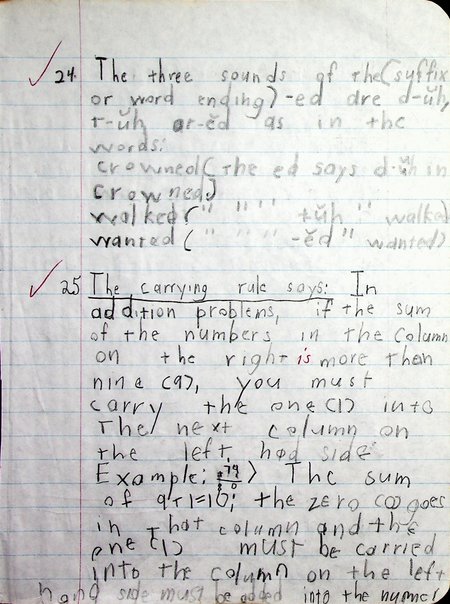 24 The three sounds of the (suffix
or word ending) -ed are d-ŭh,
t-ŭh or -ĕd as in the
words:
crowned (The ed says d-ŭh in
crowned)
walked (" " " tŭh " walked)
wanted (" " " -ĕd " wanted)
25 The carrying rule says: In
addition problems, if the sum
of the numbers in the column
on the right is more then
nine (9), you must
carry the one (1) into
The next column on
the left had side
Example: 79 The sum
of 9+1=10; the zero (0) goes
in that column and the
one (1) must be carried
into the column on the left
hand side must be added into the numer